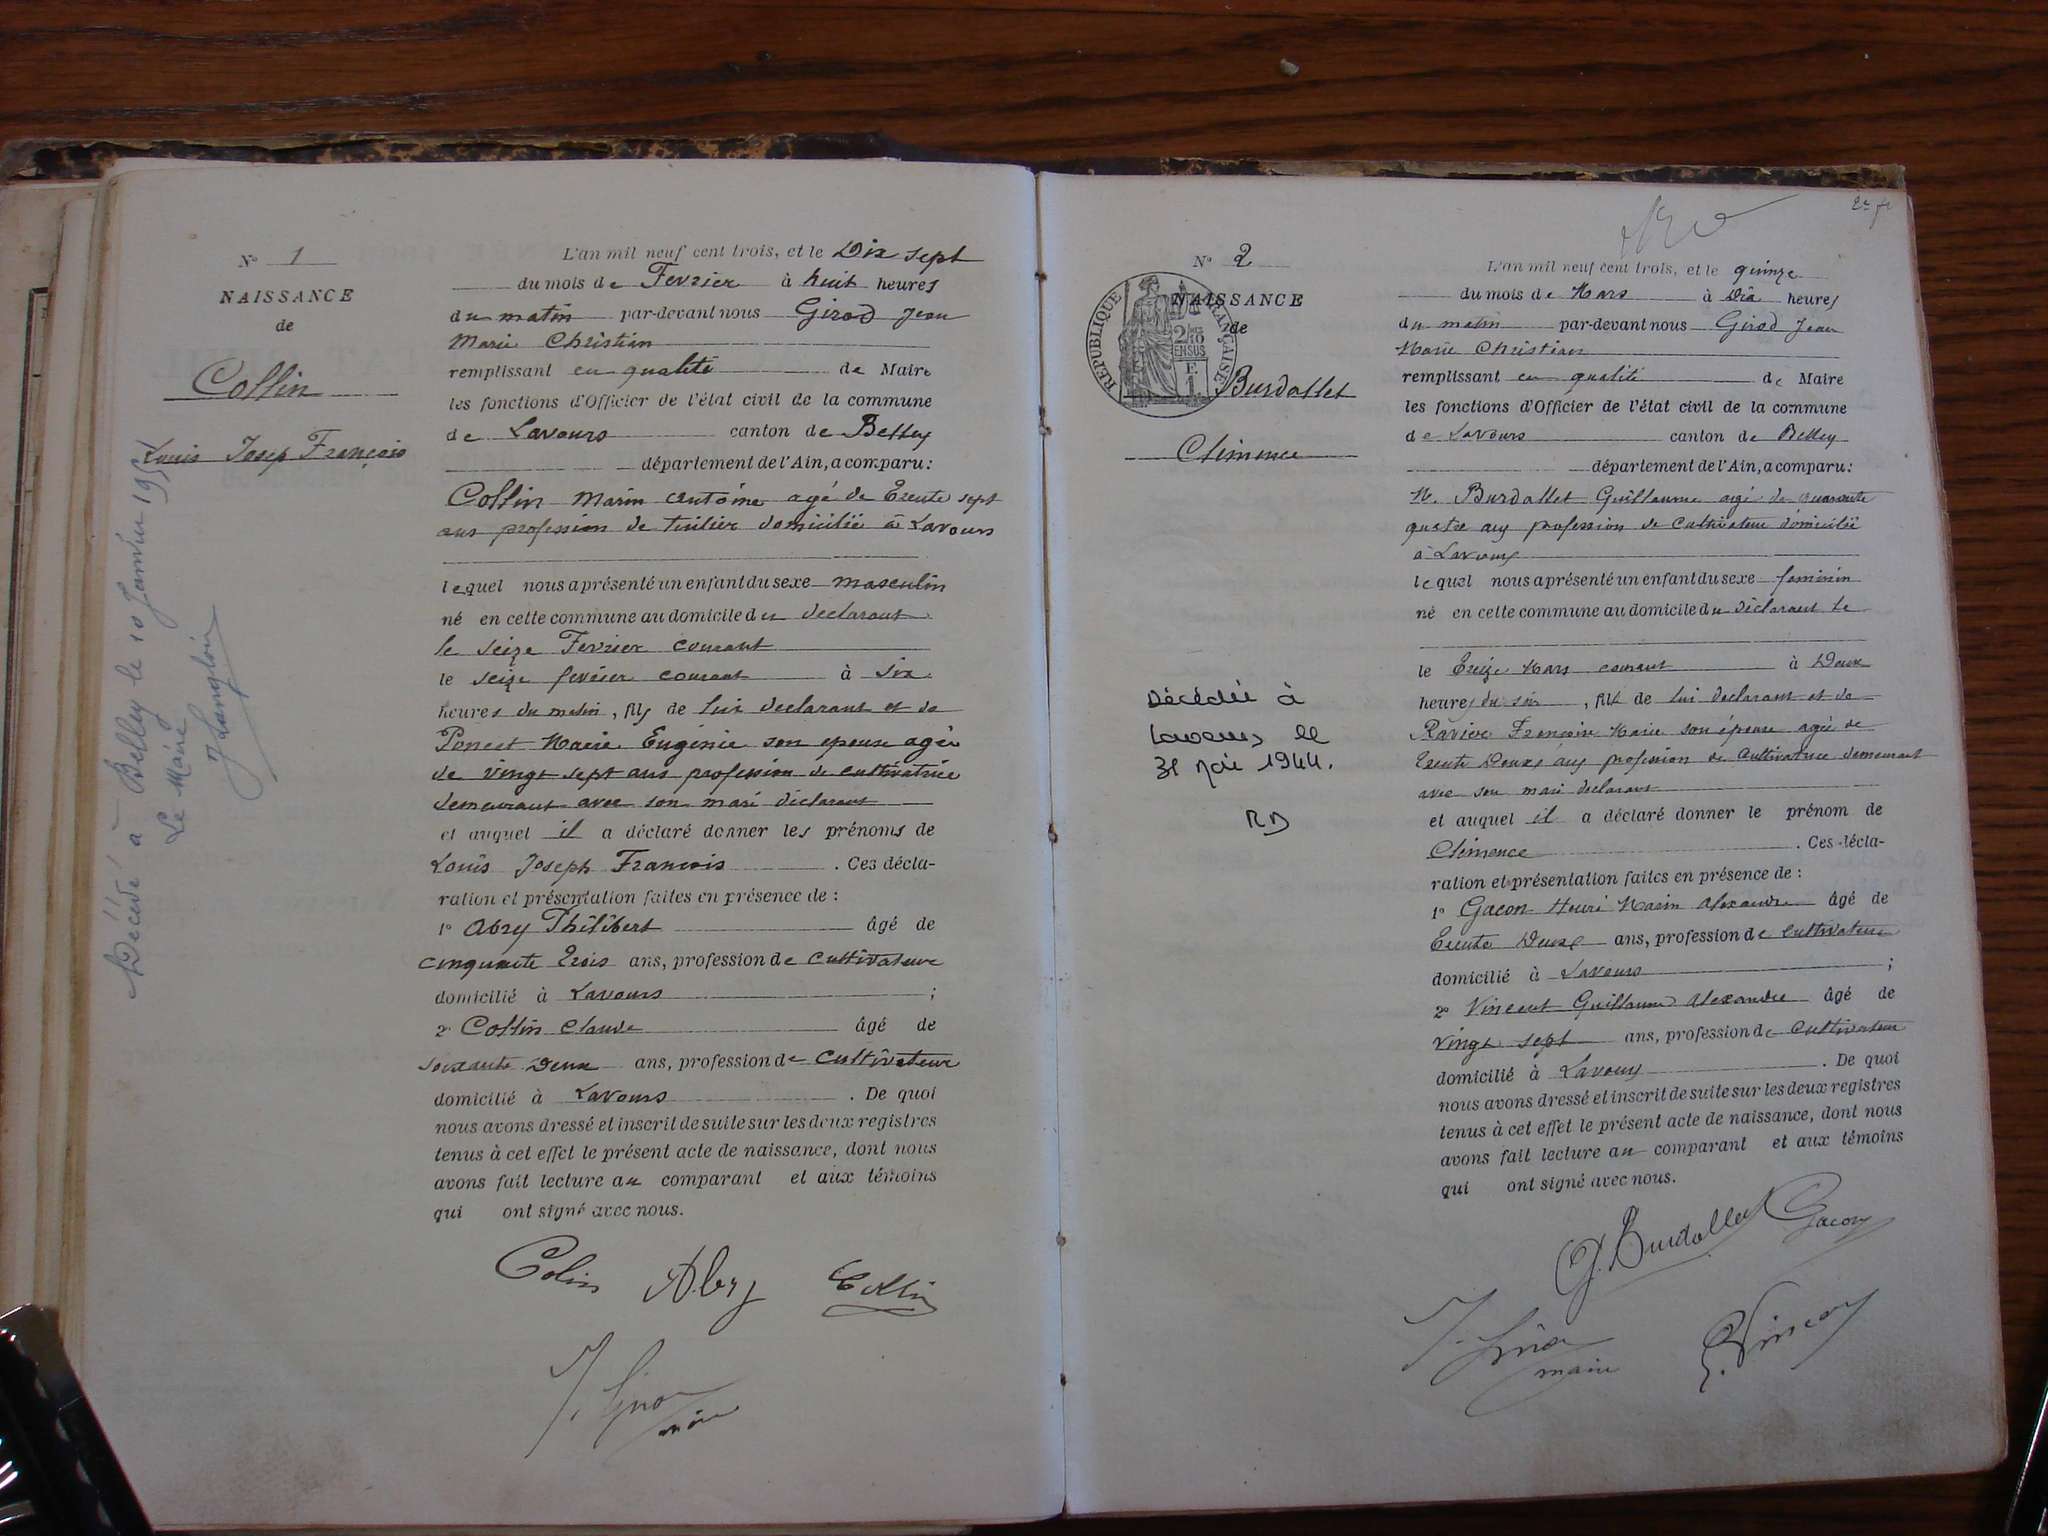 N° 1
NAISSANCE
de
Collin
Louis Josep François
Décédé à Belley le 10 Janvier 195
Le Maire
J Langlois
L'an mil neuf cent trois, et le Dix sept
du mois de Fevrier à huit heures
du matin par-devant nous Girod Jean
Marie Christian
remplissant en qualité de Maire
les fonctions d'Officier de l'état civil de la commune
de Lavours canton de Belley
département de l'Ain, a comparu:
Collin Marin Antoine agé de Trente sept
ans profession de tuilier domicilié à Lavours
lequel nous a présenté un enfant du sexe masculin
né en cette commune au domicile du declarant
le seize Fevrier courant
le seize fevrier courant à six
heures du matin, fils de lui declarant et de
Poncet Marie Eugénie son epouse agée
de vingt sept ans profession de cultivatrice
demeurant avec son mari déclarant
et auquel il a déclaré donner les prénoms de
Louis Joseph François. Ces décla-
ration et présentation faites en présence de :
1° Abry Philibert âgé de
cinquante trois ans, profession de cultivateur
domicilié à Lavours ;
2° Collin Claude âgé de
soixante Deux ans, profession de cultivateur
domicilié à Lavours. De quoi
nous avons dressé et inscrit de suite sur les deux registres
tenus à cet effet le présent acte de naissance, dont nous
avons fait lecture au comparant et aux témoins
qui ont signé avec nous.
Colin Abry Collin
J. Girod
maire
2e f
N° 2
NAISSANCE
de
RÉPUBLIQUE FRANÇAISE
2/10
EN SUS
F.
1
Burdallet
Clémence
Décédée à
Lavours le
31 Mai 1944.
RD
L'an mil neuf cent trois, et le quinze
du mois de Mars à Dix heures
du matin par-devant nous Girod Jean
Marie Christian
remplissant en qualité de Maire
les fonctions d'Officier de l'état civil de la commune
de Lavours canton de Belley
département de l'Ain, a comparu:
M. Burdallet Guillaume agé de quarante
quatre ans profession de Cultivateur domicilié
à Lavours
lequel nous a présenté un enfant du sexe feminin
né en cette commune au domicile du déclarant le
le Treize Mars courant à Deux
heures du soir, fille de lui declarant et de
Ravier Françoise Marie son épouse agée de
Trente Deux ans profession de Cultivatrice demeurant
avec son mari declarant
et auquel il a déclaré donner le prénom de
Clémence. Ces décla-
ration et présentation faites en présence de :
1° Gacon Henri Marin Alexandre âgé de
Trente Deux ans, profession de cultivateur
domicilié à Lavours ;
2° Vincent Guillaume Alexandre âgé de
vingt sept ans, profession de cultivateur
domicilié à Lavours. De quoi
nous avons dressé et inscrit de suite sur les deux registres
tenus à cet effet le présent acte de naissance, dont nous
avons fait lecture au comparant et aux témoins
qui ont signé avec nous.
G. Burdallet Gacon
J. Girod
maire
Vincent